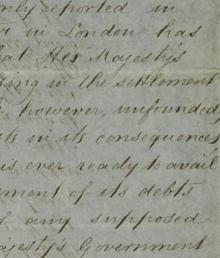 only reported in
in London has
that Her Majesty's
ing in the settlement
however, unfounded,
its in its consequences
is ever ready to avail
ment of its debts
of any supposed
Majesty's Government